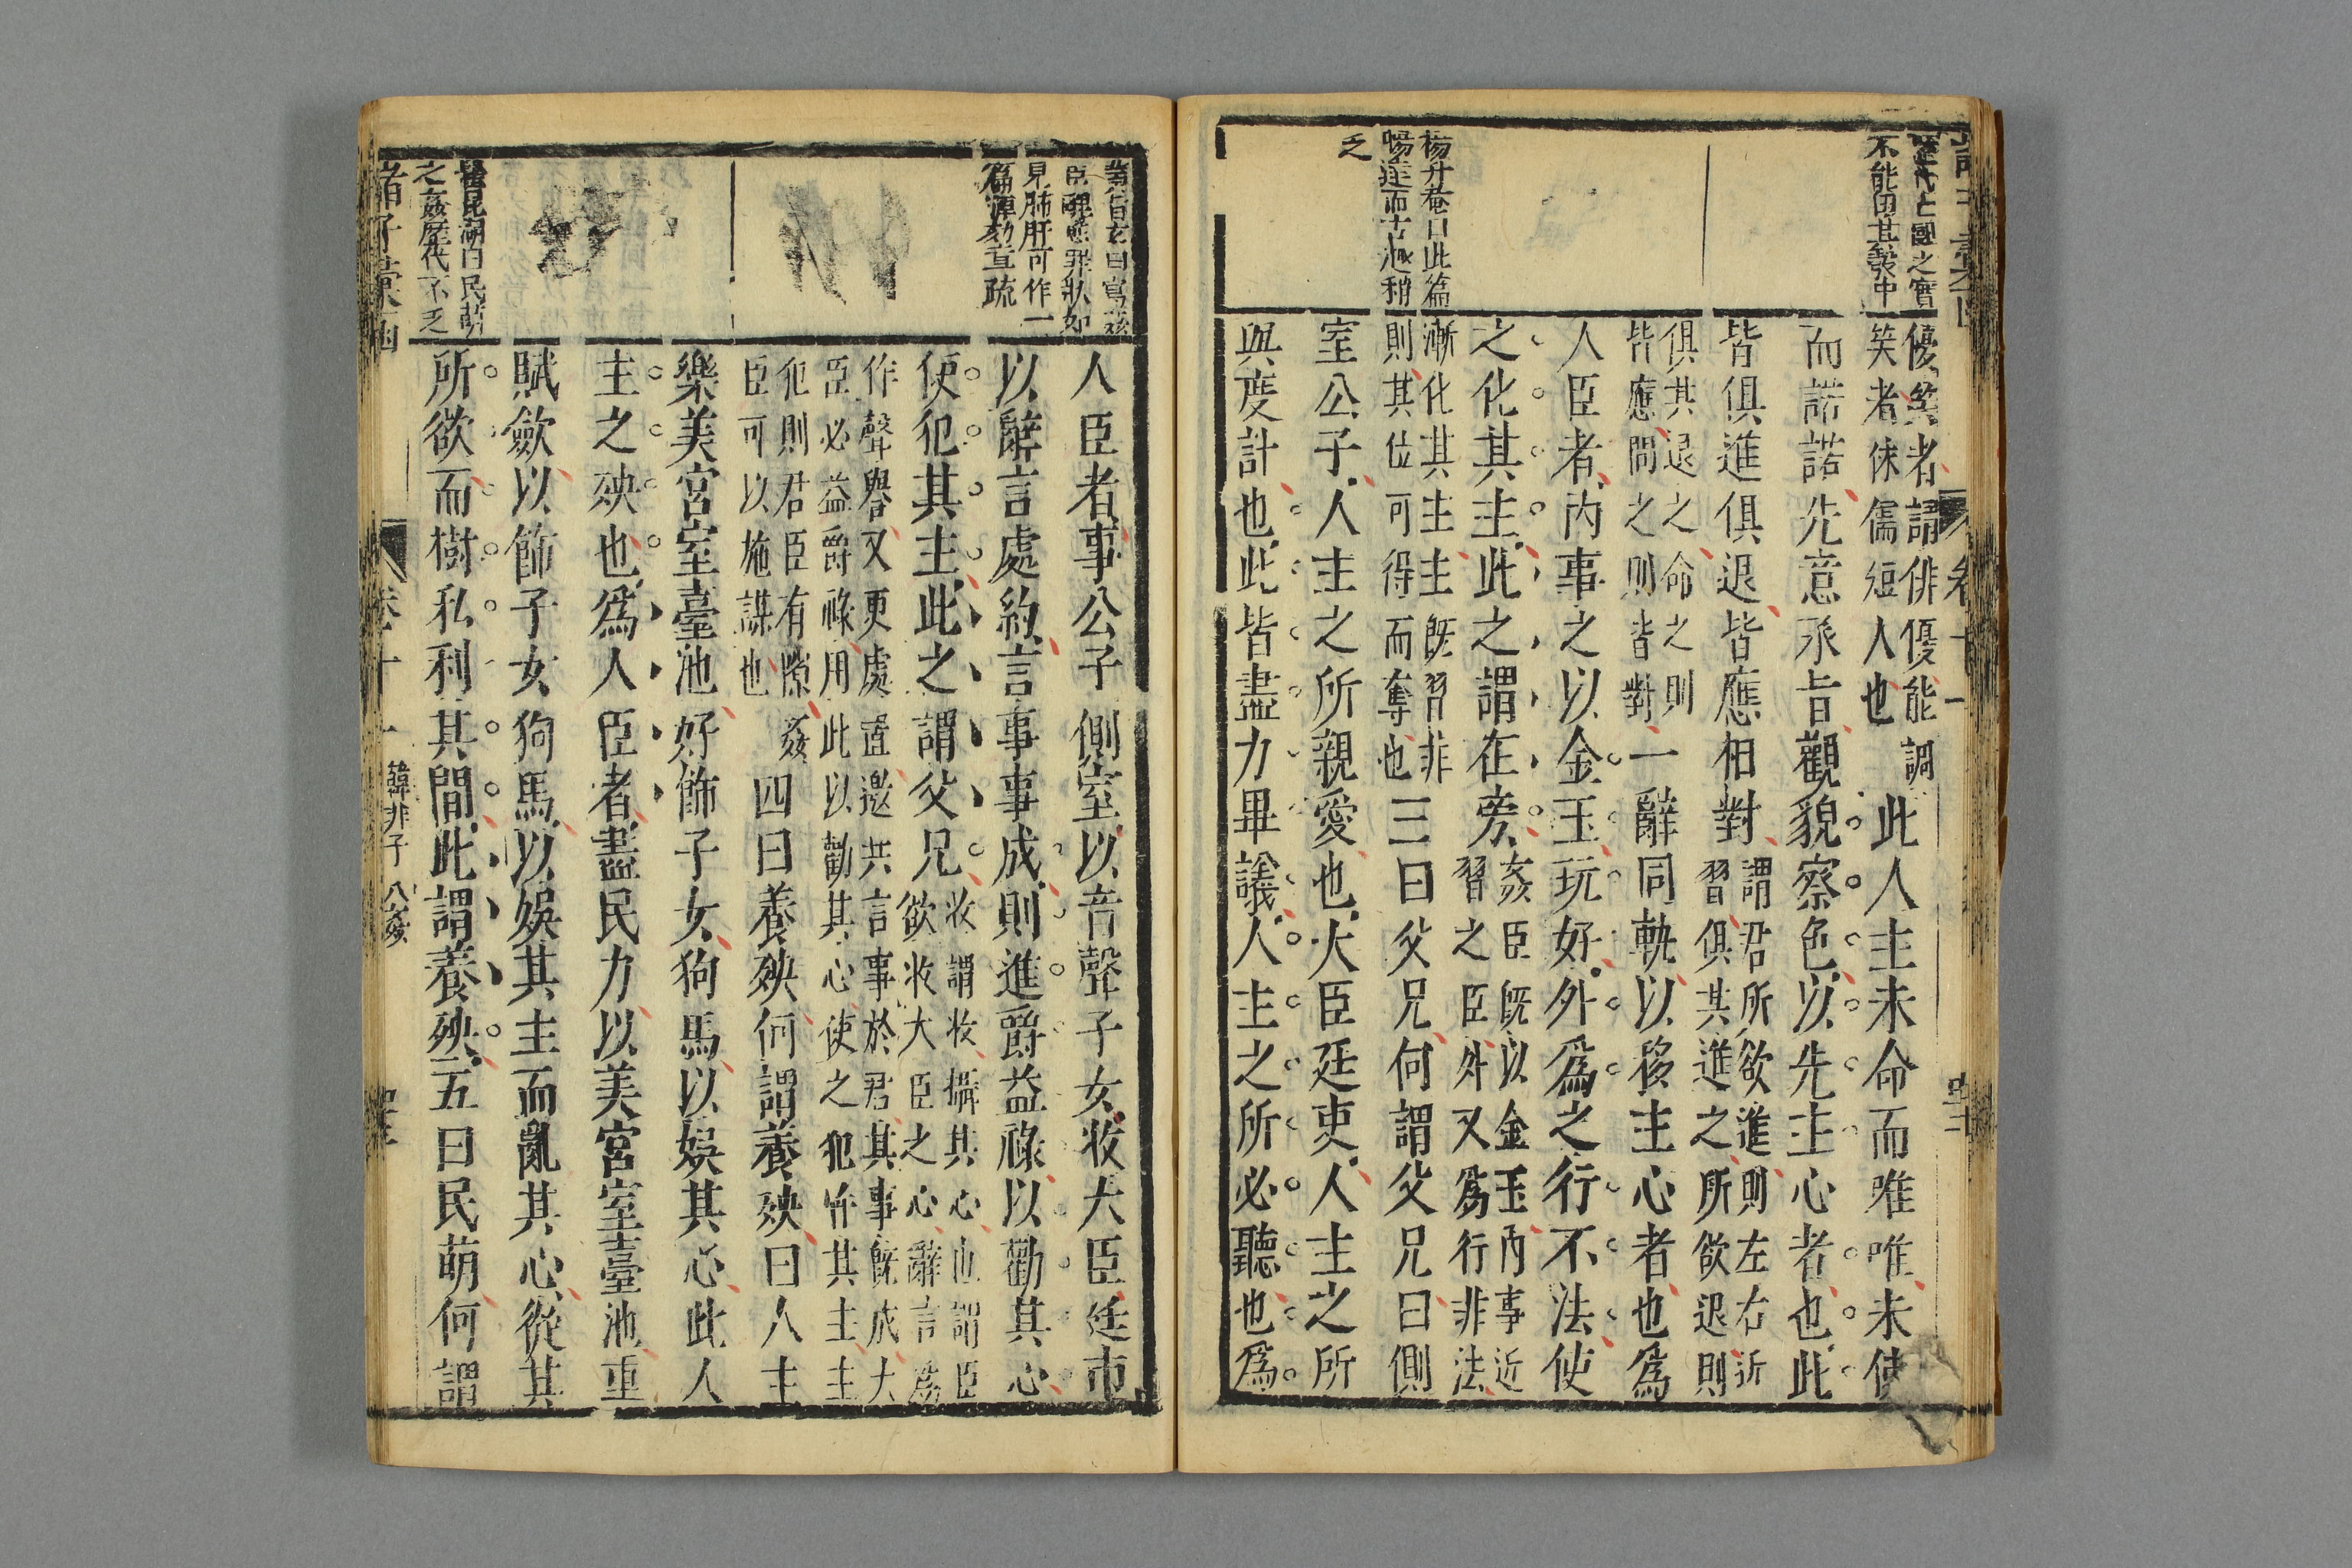 不能出其彀中
優笑者謂俳優能調
笑者侏儒短人也
此人主未命而唯唯未使
而諾諾先意承旨觀貌察色以先主心者也此
皆俱進俱退皆應相對
謂君所欲進則左右近
習俱其進之所欲退則
俱其退之命之則
皆應問之則皆對
一辭同軌以移主心者也爲
人臣者內事之以金玉玩好外爲之行不法使
之化其主此之謂在旁
姦臣旣以金玉內事近
習之臣外又爲行非法
漸化其主主旣習非
則其位可得而奪也
三曰父兄何謂父兄曰側
楊升菴曰此篇
暢達而古遬稍
乏
室公子人主之所親愛也大臣廷吏人主之所
與度計也此皆盡力畢議人主之所必聽也爲
臣罪狀如
見肺肝可作一
篇彈劾章疏
人臣者事公子側室以音聲子女收大臣廷市
以辭言處約言事事成則進爵益祿以勸其心
使犯其主此之謂父兄
收謂收攝其心也謂臣
欲收大臣之心辭言爲
作聲譽又更處置邀共言事於君其事旣成大
臣必益爵祿用此以勸其心使之犯忤其主主
犯則君臣有隙姦
臣可以施謀也
四曰養殃何謂養殃曰人主
樂美宮室臺池好飾子女狗馬以娛其心此人
主之殃也爲人臣者盡民力以美宮室臺池重
賦斂以飾子女狗馬以娛其主而亂其心從其
昆湖曰民萌
之姦歷代不乏
所欲而樹私利其間此謂養殃五曰民萌何謂
卷十一 韓非子 八姦